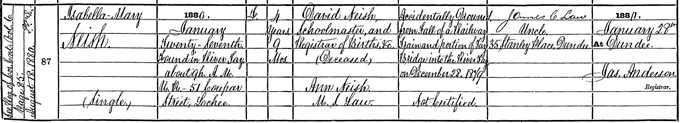 Isabella-Mary
Neish
(Single)
87
1880.
January
Twenty-Seventh
Found in River Tay
about 9h. A.M.
U.R. - 51 Coupar
Street, Lochee
F.
4
Years
9
Mos
David Neish
Schoolmaster, and
Registrar of Births, &c.
(Deceased)
Ann Neish
M.S. Law
Accidentally Drowned
from Fall of a Railway
Train and portion of Tay
Bridge into the River Tay
on December 28. 1879.
Not Certified.
James C Law
Uncle.
35 Stanley Place, Dundee
1880.
January 28th
At Dundee
Jas. Anderson
Registrar.